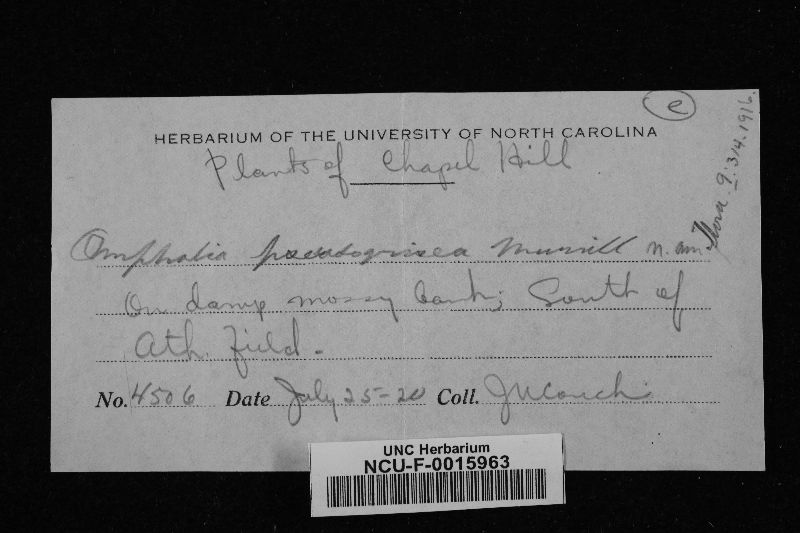 e
HERBARIUM OF THE UNIVERSITY OF NORTH CAROLINA
Plants of Chapel Hill
Omphalia Murrill N. Am. Flora. 9: 314. 1916.
On damp mossy bank; South of
Ath. Field.
No. 4506 Date July 25-20 Coll. J N Couch
UNC Herbarium
NCU-F-0015963